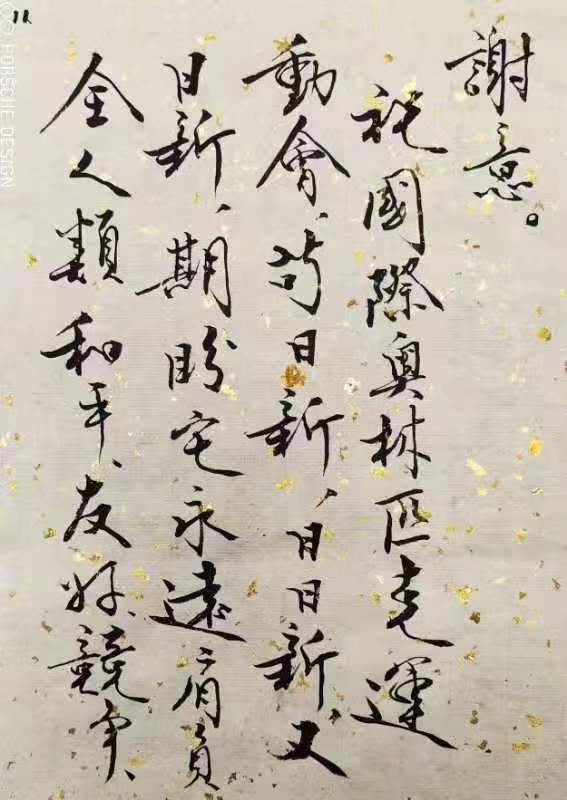 謝意。
祝國際奧林匹克運
動會、苟日新、日日新、又
日新、期盼它永遠肩負
全人類和平、友好、競爭、
11
PORSCHE DESIGN